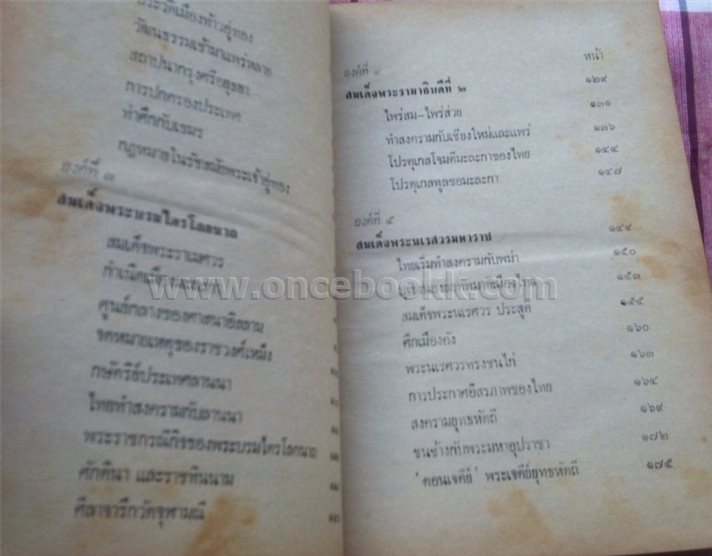 ประวัติเมืองท้าวอู่ทอง
วัฒนธรรมเข้ามาแพร่หลาย
สถาปนากรุงศรีอยุธยา
การปกครองประเทศ
ทำศึกกับเขมร
กฎหมายในรัชสมัยพระเจ้าอู่ทอง
องค์ที่ ๓
สมเด็จพระบรมไตรโลกนาถ
สมเด็จพระราเมศวร
กำเนิดเมือง
ศูนย์กลางของศาสนาอิสลาม
จดหมายเหตุของราชวงศ์เหม็ง
กษัตริย์ประเทศลานนา
ไทยทำสงครามกับลานนา
พระราชกรณีกิจของพระบรมไตรโลกนาถ
ศักดินา และราชทินนาม
ศิลาจารึกวัดจุฬามณี
หน้า
องค์ที่ ๔
สมเด็จพระรามาธิบดีที่ ๒ ๑๒๙
ไพร่สม-ไพร่ส่วย ๑๓๑
ทำสงครามกับเชียงใหม่และแพร่ ๑๓๖
โปรตุเกสโจมตีมะละกาของไทย ๑๔๔
โปรตุเกสทูลขอมะละกา ๑๔๗
องค์ที่ ๕
สมเด็จพระนเรศวรมหาราช ๑๔๙
ไทยเริ่มทำสงครามกับพม่า ๑๕๐
๑๕๓
สมเด็จพระนเรศวร ประสูติ ๑๕๕
ศึกเมืองคัง ๑๖๐
พระนเรศวรทรงชนไก่ ๑๖๓
การประกาศอิสรภาพของไทย ๑๖๔
สงครามยุทธหัตถี ๑๖๙
ชนช้างกับพระมหาอุปราชา ๑๗๒
'ดอนเจดีย์' พระเจดีย์ยุทธหัตถี ๑๗๕
www.oncebookk.com